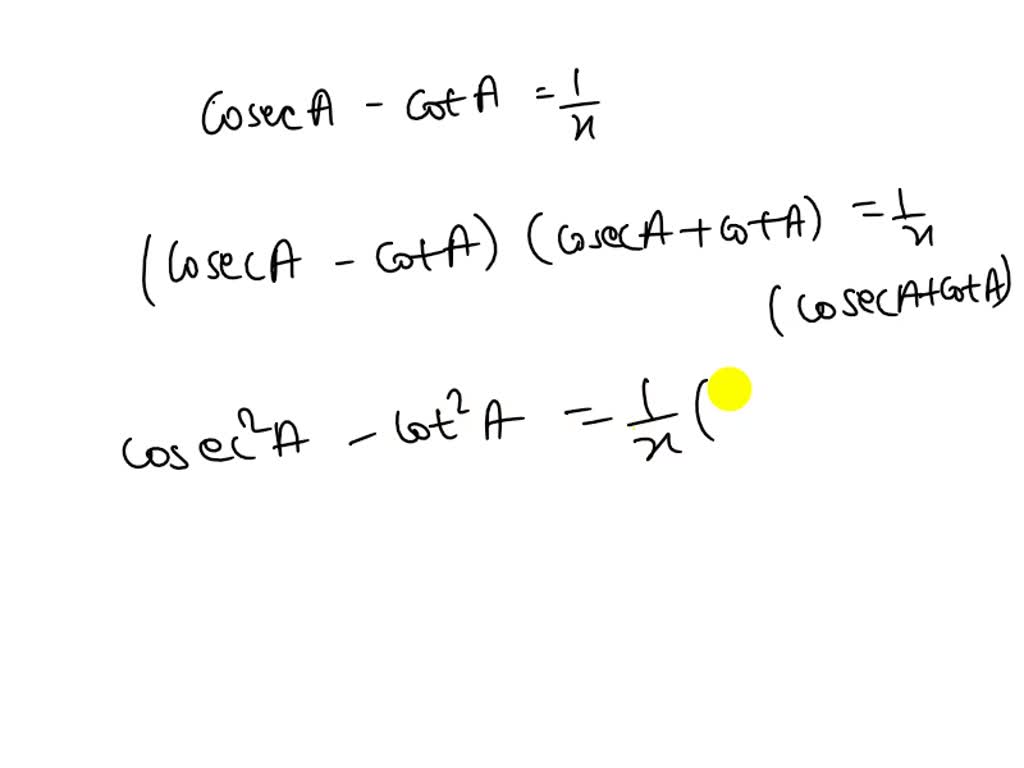 cosecA - cotA = 1/x
(cosecA - cotA) (cosecA + cotA) = 1/x
(cosecA + cotA)
cosec²A - cot²A = 1/x (